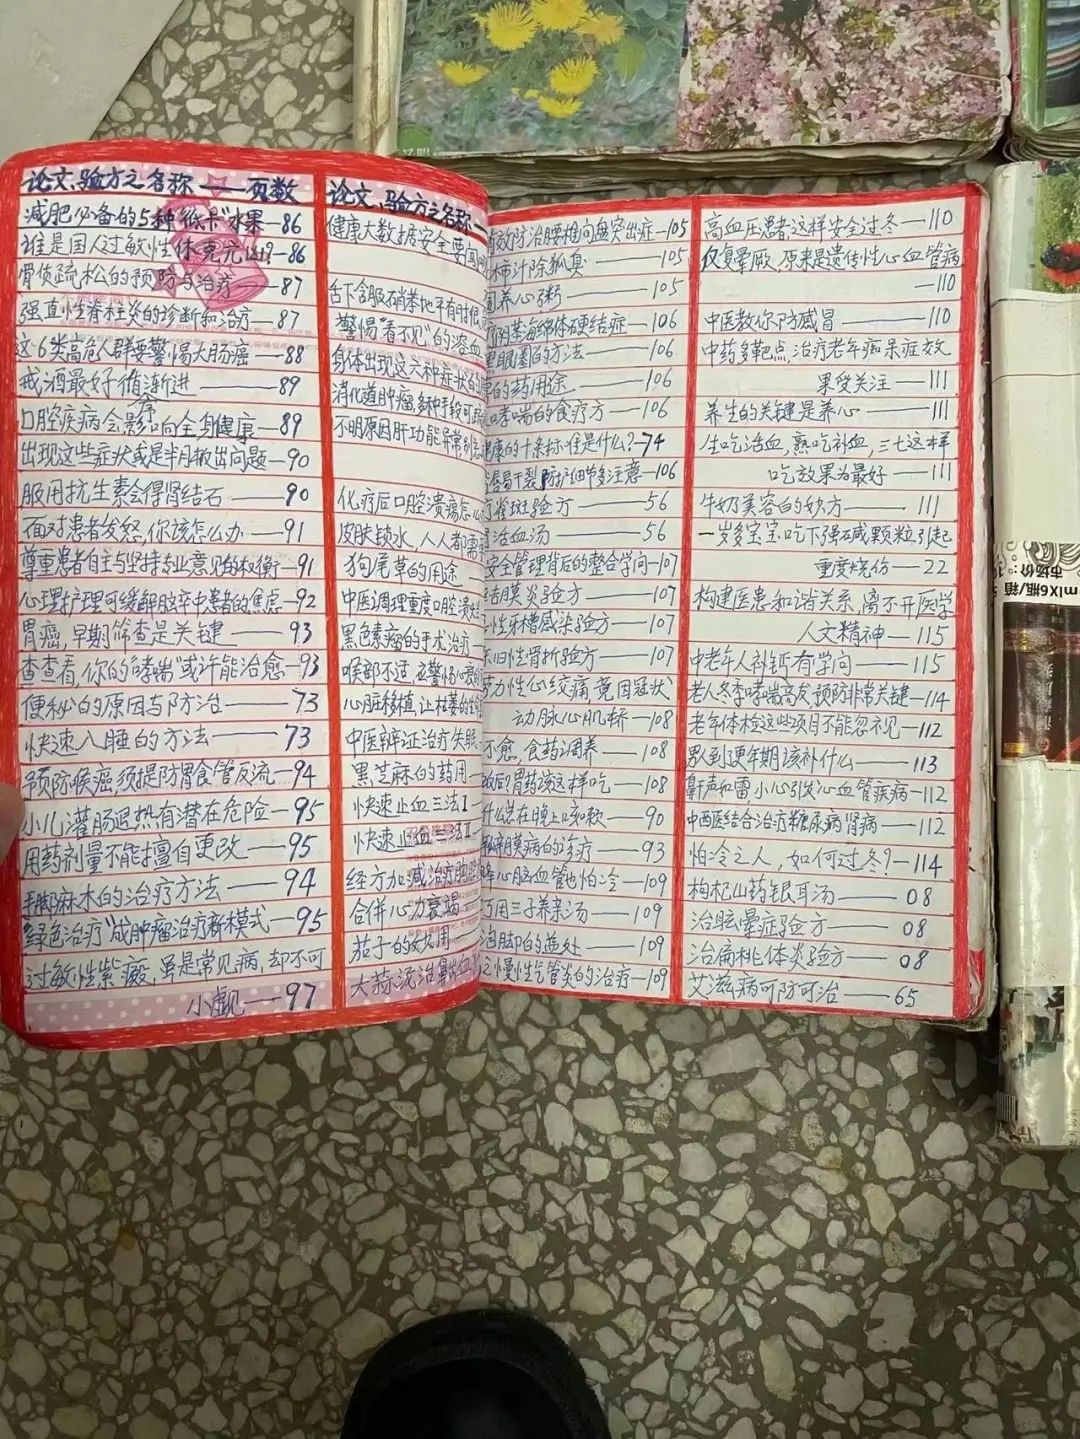 论文、验方之名称——页数
减肥必备的5种"低卡"水果—86
谁是国人过敏性休克元凶?—86
骨质疏松的预防与治疗—87
强直性脊柱炎的诊断和治疗—87
这6类高危人群要警惕大肠癌—88
戒酒最好循序渐进——89
口腔疾病会影响全身健康—89
出现这些症状或是半月板出问题—90
服用抗生素会得肾结石——90
面对患者发怒,你该怎么办—91
尊重患者自主与坚持专业意见的权衡—91
心理护理可缓解脑卒中患者的焦虑—92
胃癌,早期筛查是关键——93
查查看,你的"哮喘"或许能治愈—93
便秘的原因与防治——73
快速入睡的方法——73
预防喉癌须提防胃食管反流—94
小儿灌肠退热有潜在危险—95
用药剂量不能擅自更改—95
手脚麻木的治疗方法——94
"绿色治疗"成肿瘤治疗新模式—95
过敏性紫癜,虽是常见病,却不可
小觑—97
论文、验方之名称—
健康大数据安全要
舌下含服硝苯地平有时很
警惕"看不见"的溶血
身体出现这六种症状
消化道肿瘤,多种手段可
不明原因肝功能异常别
化疗后口腔溃疡怎
皮肤锁水,人人都需
狗尾草的用途—
中医调理重度口腔溃疡
黑色素瘤的手术治疗—
喉部不适,也警惕心衰
心脏移植,让枯萎的生
中医辨证治疗失眠
黑芝麻的药用—
快速止血三法I
快速止血三法II
经方加减治疗胸
合併心力衰竭—
茄子的妙用
大蒜泥治鼻出血
有效防治腰椎间盘突出症—105
汁除狐臭——105
养心粥——105
阴茎海绵体硬结症—106
黑眼圈的方法——106
的药用途——106
哮喘的食疗方——106
健康的十条标准是什么?—74
唇易干裂,防护细节多注意—106
斑验方——56
活血汤——56
安全管理背后的整合学问—107
结膜炎验方——107
性牙槽感染验方——107
陈旧性骨折验方——107
劳力性心绞痛,竟因冠状
动脉心肌桥—108
不愈,食药调养——108
饭后胃药该这样吃——108
什么总在晚上咳嗽——90
瓣膜病的诊疗——93
心脑血管也怕冷—109
巧用三子养亲汤——109
泡脚的益处——109
慢性气管炎的治疗—109
高血压患者,这样安全过冬—110
仅复晕厥,原来是遗传性心血管病
—110
中医教你防感冒——110
中药多靶点,治疗老年痴呆症效
果受关注—111
养生的关键是养心——111
生吃活血,熟吃补血,三七这样
吃效果为最好—111
牛奶美容的妙方——111
一岁多宝宝吃下强碱颗粒引起
重度烧伤—22
构建医患和谐关系,离不开医学
人文精神—115
中老年人补钙有学问——115
老人冬季哮喘高发,预防非常关键—114
老年体检这些项目不能忽视—112
男到更年期该补什么——113
鼾声如雷,小心引发心血管疾病—112
中西医结合治疗糖尿病肾病—112
怕冷之人,如何过冬?—114
枸杞山药银耳汤——08
治眩晕症验方——08
治扁桃体炎验方——08
艾滋病可防可治——65
mlX6瓶/箱
市场价: